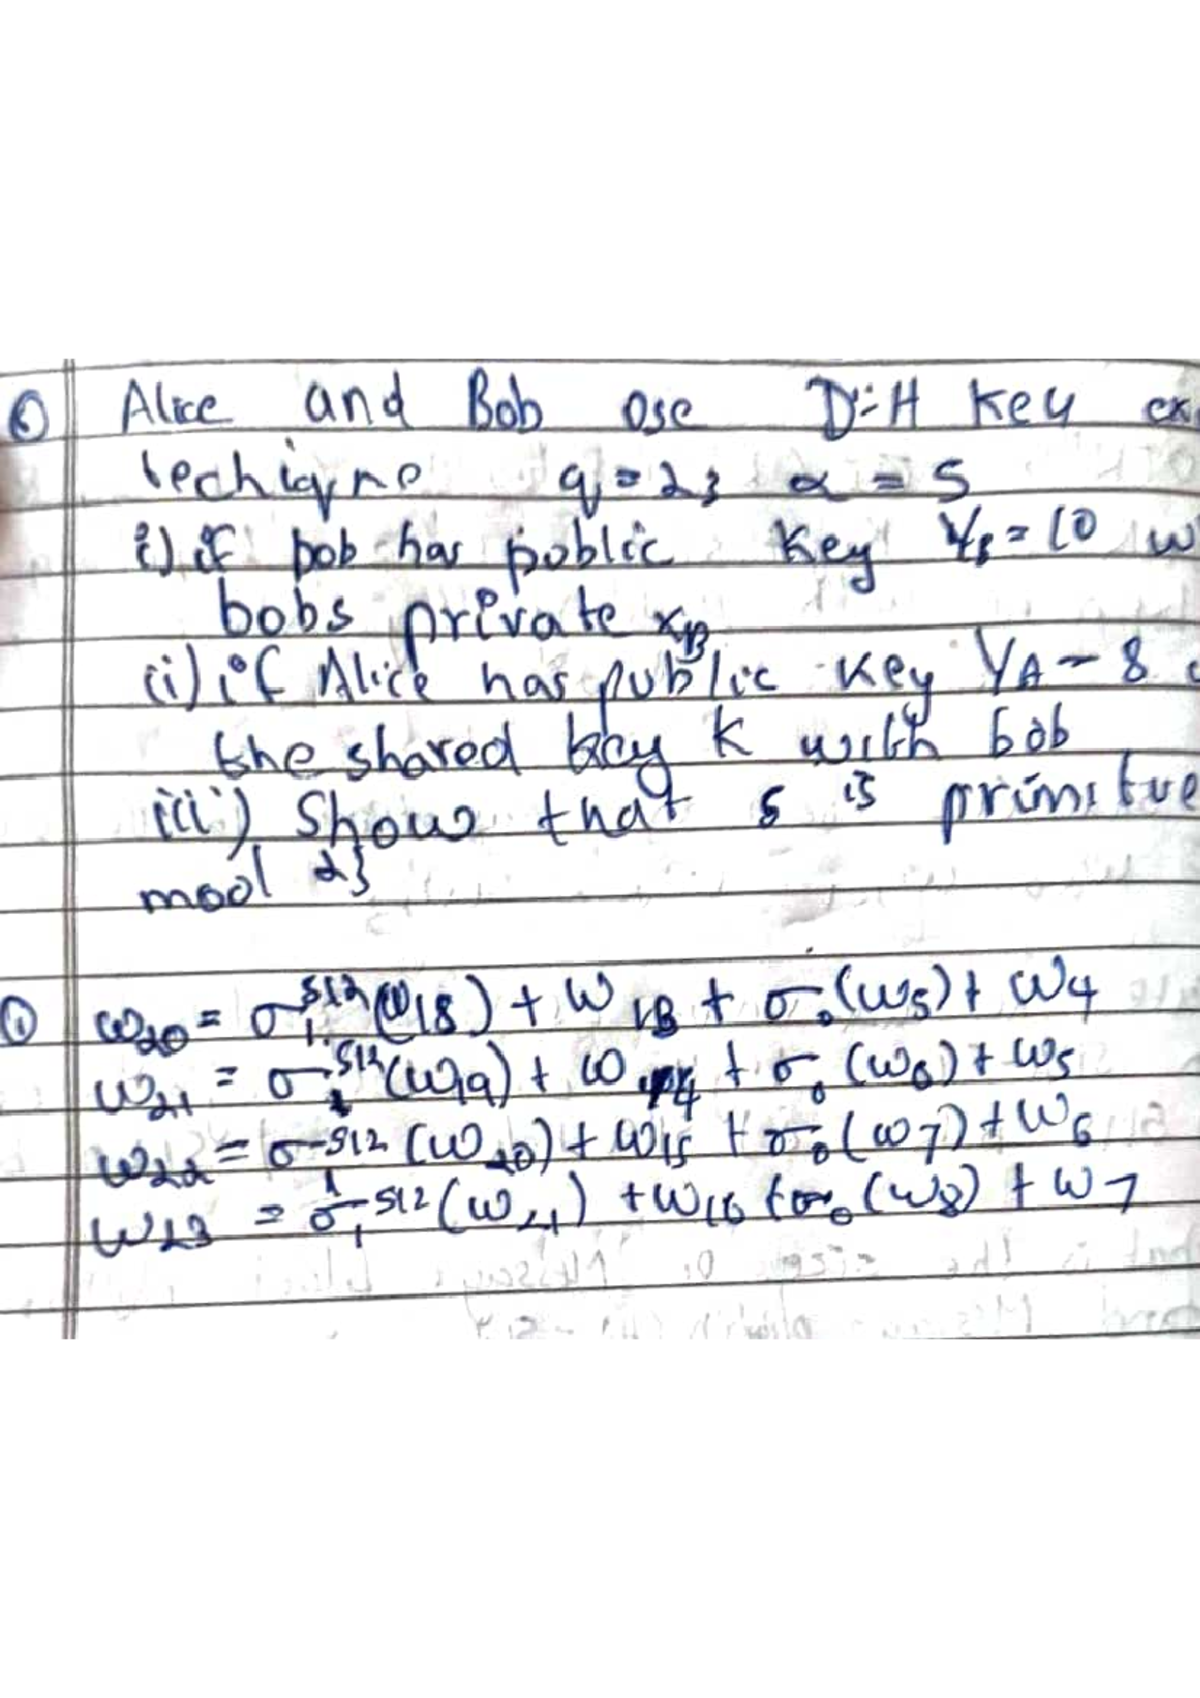 6) Alice and Bob ose D-H Key ex
techiqne q = 23 α = 5
i) if bob has poblic Key Y_B = 10 w
bobs private x_B
(i) if Alice has public key Y_A - 8
the shared key k with bob
iii) Show that 5 is primitve
mod 23
① w_20 = σ_1^512 (w_18) + w_13 + σ_0 (w_5) + w_4
w_21 = σ_1^512 (w_19) + w_14 + σ_0 (w_6) + w_5
w_22 = σ_1^512 (w_20) + w_15 + σ_0 (w_7) + w_6
w_23 = σ_1^512 (w_21) + w_16 + σ_0 (w_8) + w_7